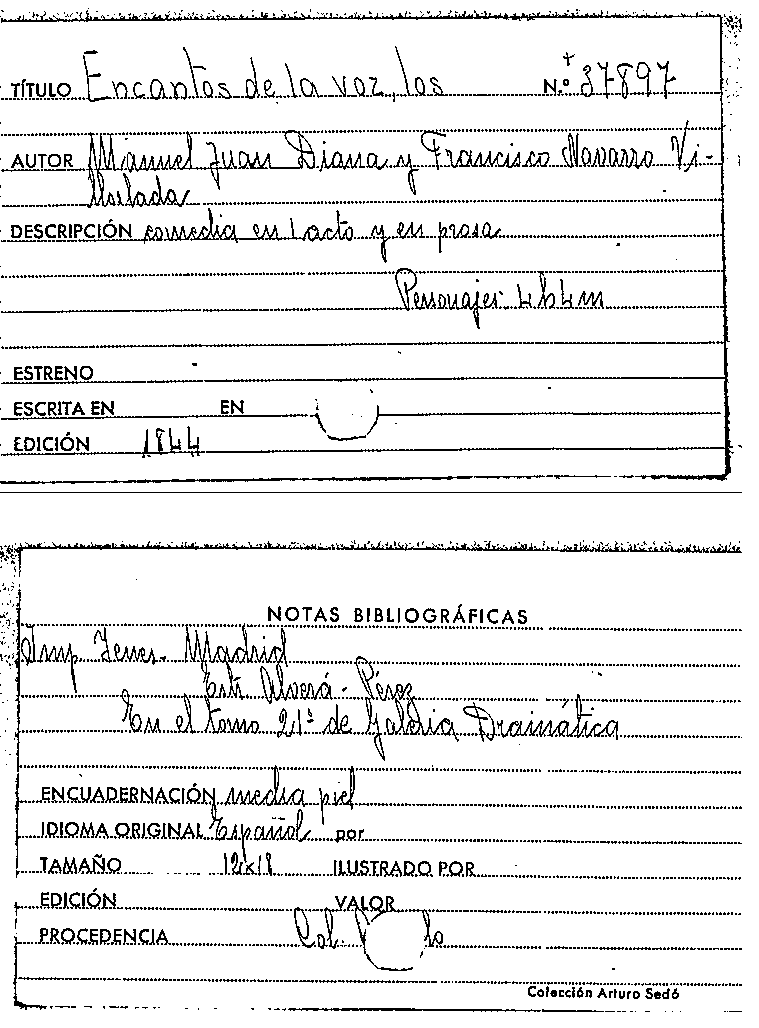 TÍTULO Encantos de la voz, los N.º 37897
AUTOR Manuel Juan Diana y Francisco Navarro Vi-
lloslada
DESCRIPCIÓN comedia en 1 acto y en prosa
Personajes 4h4m
ESTRENO
ESCRITA EN EN
EDICIÓN 1844
NOTAS BIBLIOGRÁFICAS
Imp Yenes. Madrid
Estr. Pérez
En el tomo 21º de Galería Dramática
ENCUADERNACIÓN media piel
IDIOMA ORIGINAL Español por
TAMAÑO 12x18 ILUSTRADO POR
EDICIÓN VALOR
PROCEDENCIA Col.
Colección Arturo Sedó